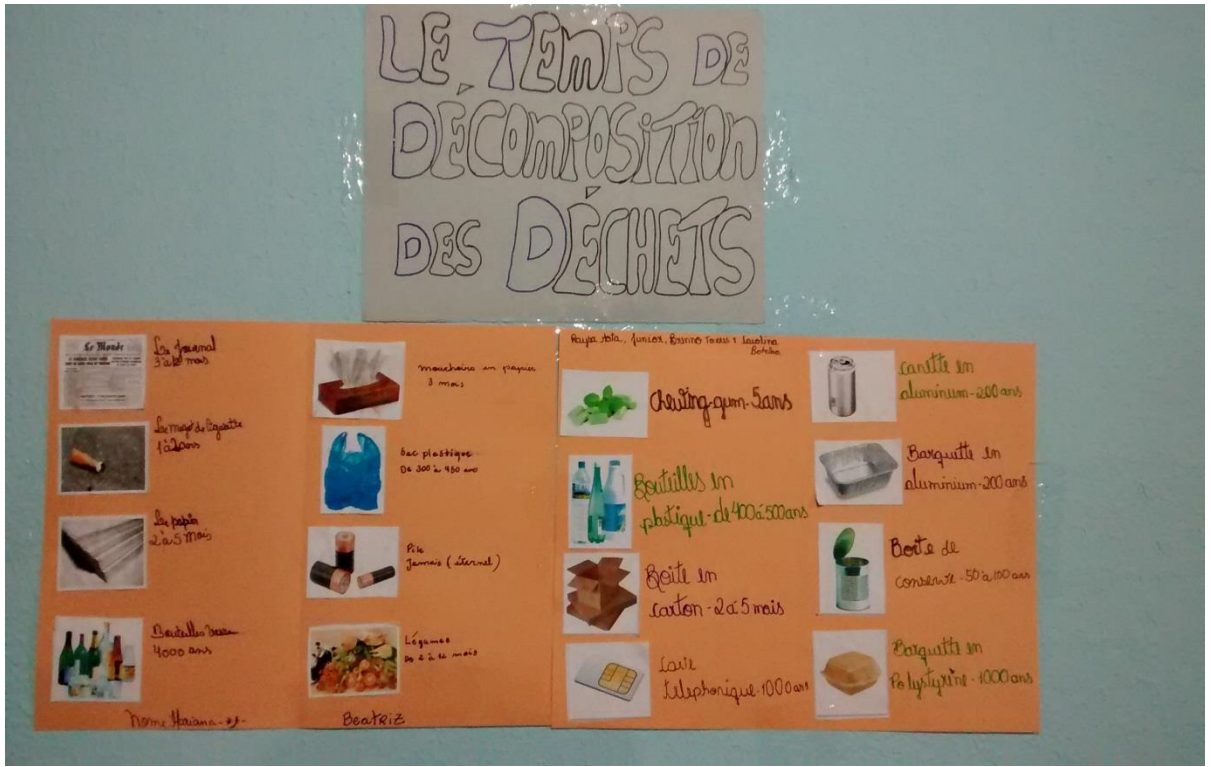 LE TEMPS DE
DÉCOMPOSITION
DES DÉCHETS
Le Monde
Le Journal
3 à 12 mois
Le megot de cigarette
1 à 2 ans
Le papier
2 à 5 mois
Bouteilles
4000 ans
Nome Mariana
mouchoirs en papier
3 mois
Sac plastique
De 300 à 450 ans
Pile
Jamais (éternel)
Légumes
De 2 à 12 mois
Beatriz
Junior, Brenno
Chewing-gum-5ans
Bouteilles en
plastique-de 400 à 500 ans
Boite en
carton-2 à 5 mois
Carte
telephonique-1000 ans
canette en
aluminium-200 ans
Barquette en
aluminium-200 ans
Boite de
conserve-50 à 100 ans
Barquette en
Polystyrène-1000 ans